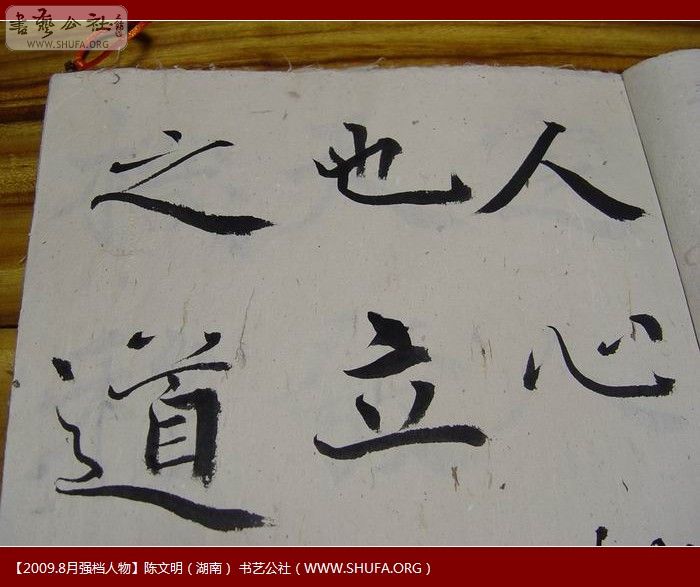 书艺公社
WWW.SHUFA.ORG
人心
也立
之道
【2009.8月强档人物】陈文明（湖南） 书艺公社（WWW.SHUFA.ORG）